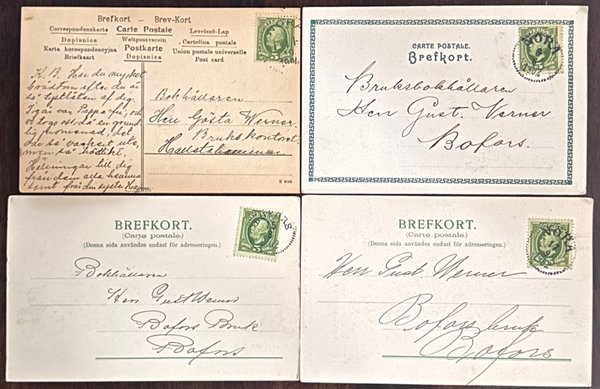 Brefkort — Brev-Kort
Correspondenzkarte Carte Postale Levelező-Lap
Dopisnice Weltpostverein Cartolina postale
Karta korespondencyjna Postkarte Union postale universelle
Briefkaart Dopisnica Post card
K. B. Har du mycket
brådtom efter du ej
Igår var Pappa
promenad, det
var så vackert ute,
men
Hälsningar till dig
från dem alla hemma
samt från den
Bokhållaren
Herr Gösta Werner
Brukskontoret
Hallstahammar
CARTE POSTALE.
Brefkort.
Bruksbokhållaren
Herr Gust. Werner
Bofors.
NORA
BREFKORT.
(Carte postale.)
(Denna sida användes endast för adresseringen.)
Bokhållaren
Herr Gust Werner
Bofors Bruk
Bofors
BREFKORT.
(Carte postale.)
(Denna sida användes endast för adresseringen.)
NORA
Herr Gust Werner
Bofors bruk
Bofors